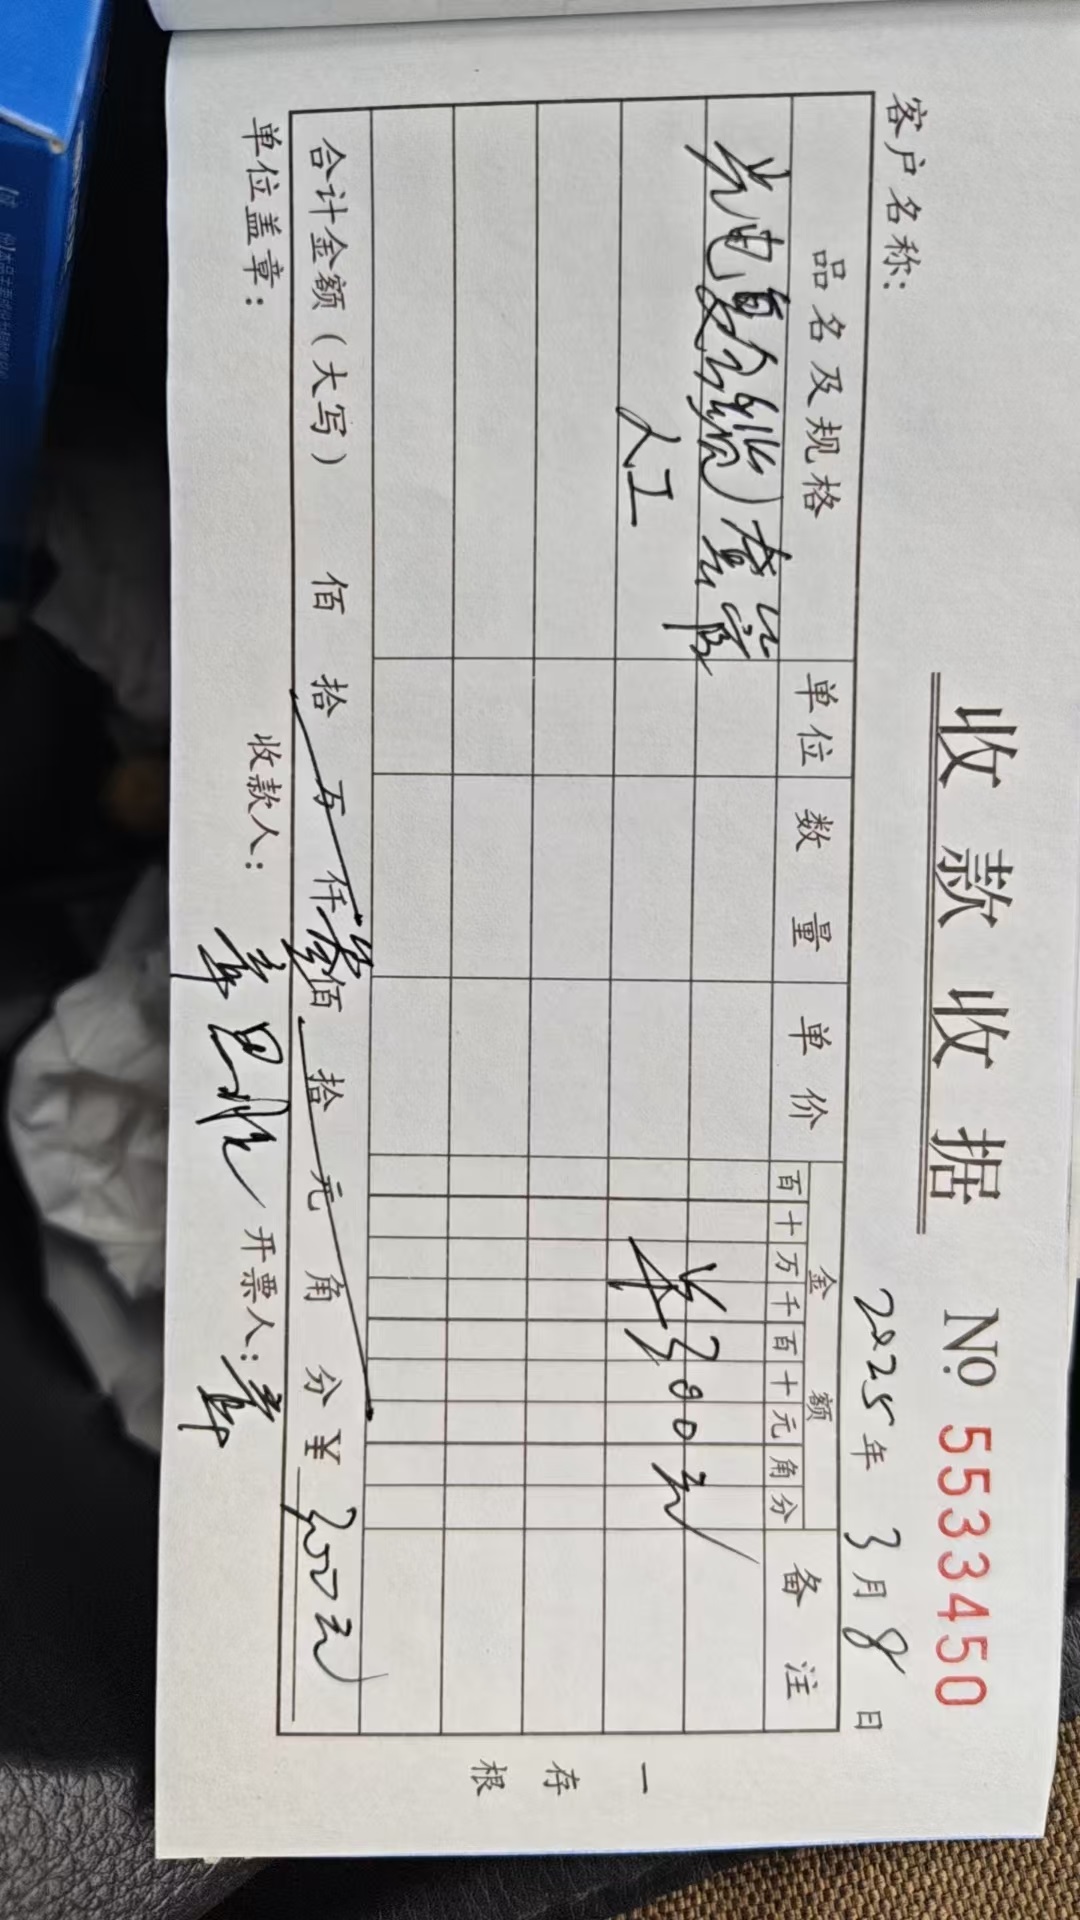 收款收据 № 5533450
2025年3月8日
客户名称:
品名及规格 单位 数量 单价 金额 备注
百十万千百十元角分
光电复合缆)查障 300元
人工
合计金额(大写) 佰 拾 万 仟 叁佰 拾 元 角 分 ¥ 300元
单位盖章: 收款人: 开票人:
一存根